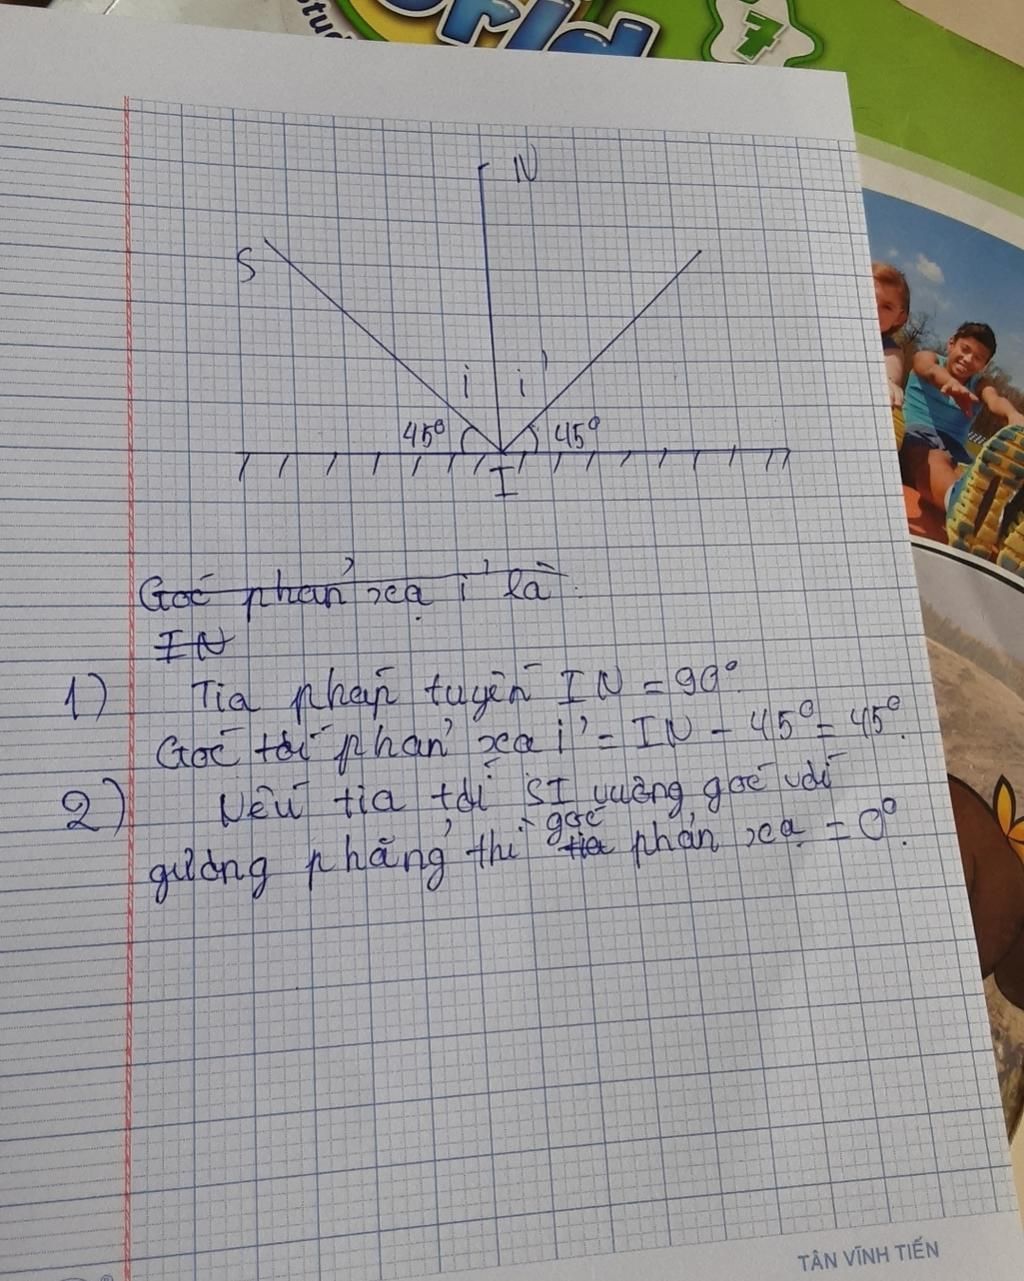 rld
7
N
S
i i'
45° 45°
I
Góc phản xạ i' là:
IN
1) Tia pháp tuyến IN = 90°.
Góc tới phản xạ i' = IN - 45° = 45°.
2) Nếu tia tới SI vuông góc với
gương phẳng thì tia góc phản xạ = 0°.
TÂN VĨNH TIẾN